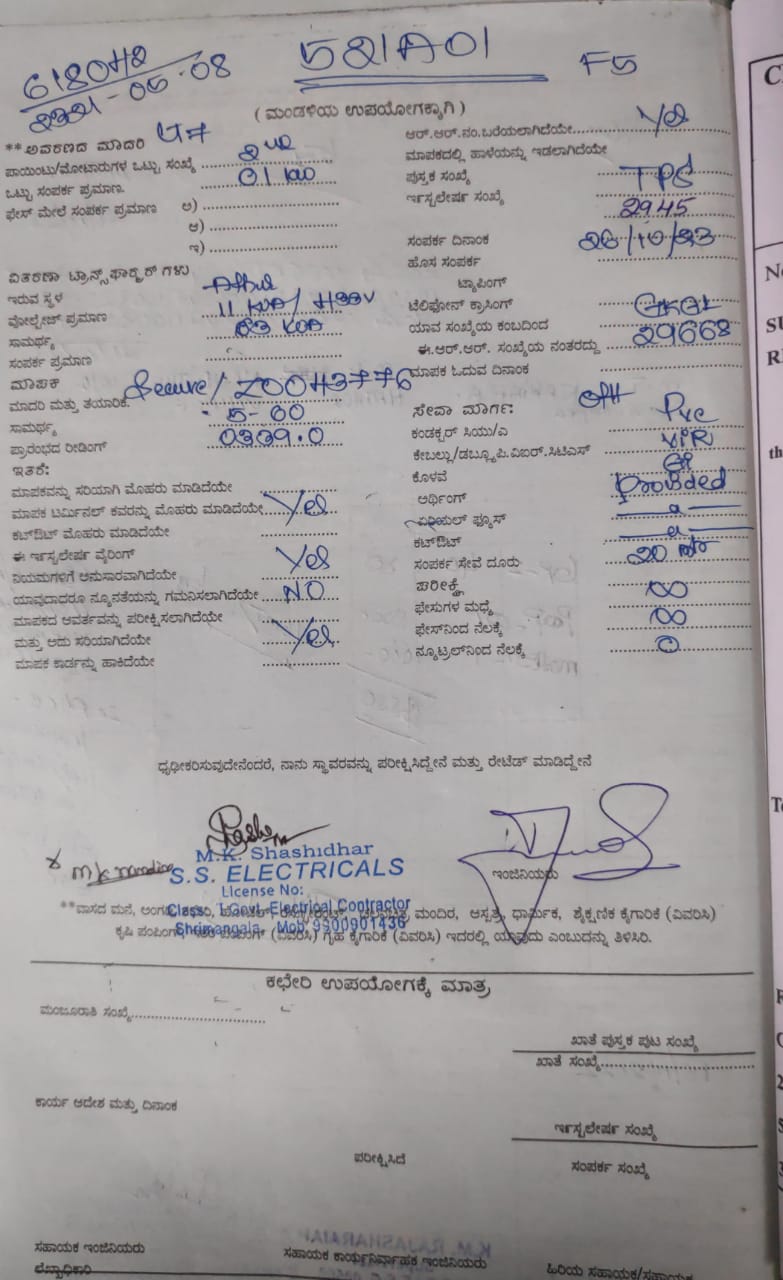 521A01
F5
( ಮಂಡಳಿಯ ಉಪಯೋಗಕ್ಕಾಗಿ )
**ಅವರಣದ ಮಾದರಿ
ಪಾಯಿಂಟು/ಮೋಟಾರುಗಳ ಒಟ್ಟು ಸಂಖ್ಯೆ
ಒಟ್ಟು ಸಂಪರ್ಕ ಪ್ರಮಾಣ.
ಫೇಸ್ ಮೇಲೆ ಸಂಪರ್ಕ ಪ್ರಮಾಣ ಅ)
ಆ)
ಇ)
ವಿತರಣಾ ಟ್ರಾನ್ಸ್‌ಫಾರ್‍ಮರ್ ಗಳು
ಇರುವ ಸ್ಥಳ
ವೋಲ್ಟೇಜ್ ಪ್ರಮಾಣ
ಸಾಮರ್ಥ್ಯ
ಸಂಪರ್ಕ ಪ್ರಮಾಣ
ಮಾಪಕ
ಮಾದರಿ ಮತ್ತು ತಯಾರಿಕೆ Secure/
ಸಾಮರ್ಥ್ಯ 5-60
ಪ್ರಾರಂಭದ ರೀಡಿಂಗ್ 0339.0
ಇತರೆ:
ಮಾಪಕವನ್ನು ಸರಿಯಾಗಿ ಮೊಹರು ಮಾಡಿದೆಯೇ
ಮಾಪಕ ಟರ್ಮಿನಲ್ ಕವರನ್ನು ಮೊಹರು ಮಾಡಿದೆಯೇ Yes
ಕಟ್‌ಔಟ್ ಮೊಹರು ಮಾಡಿದೆಯೇ
ಈ ಇನ್ಸ್ಟಲೇಷನ್ ವೈರಿಂಗ್
ನಿಯಮಗಳಿಗೆ ಅನುಸಾರವಾಗಿದೆಯೇ Yes
ಯಾವುದಾದರೂ ನ್ಯೂನತೆಯನ್ನು ಗಮನಿಸಲಾಗಿದೆಯೇ NO
ಮಾಪಕದ ಆವರ್ತವನ್ನು ಪರೀಕ್ಷಿಸಲಾಗಿದೆಯೇ
ಮತ್ತು ಅದು ಸರಿಯಾಗಿದೆಯೇ Yes
ಮಾಪಕ ಕಾರ್ಡನ್ನು ಹಾಕಿದೆಯೇ
ಆರ್.ಆರ್.ನಂ.ಬರೆಯಲಾಗಿದೆಯೇ Yes
ಮಾಪಕದಲ್ಲಿ ಹಾಳೆಯನ್ನು ಇಡಲಾಗಿದೆಯೇ
ಪುಸ್ತಕ ಸಂಖ್ಯೆ TPS
ಇನ್ಸ್ಟಲೇಷನ್ ಸಂಖ್ಯೆ 2945
ಸಂಪರ್ಕ ದಿನಾಂಕ 26/10/23
ಹೊಸ ಸಂಪರ್ಕ
ಟ್ಯಾಪಿಂಗ್
ಟೆಲಿಫೋನ್ ಕ್ರಾಸಿಂಗ್
ಯಾವ ಸಂಖ್ಯೆಯ ಕಂಬದಿಂದ
ಈ.ಆರ್.ಆರ್. ಸಂಖ್ಯೆಯ ನಂತರದ್ದು 29668
ಮಾಪಕ ಓದುವ ದಿನಾಂಕ
ಸೇವಾ ಮಾರ್ಗ: OH
ಕಂಡಕ್ಟರ್ ಸಿಯು/ಎ Pvc
ಕೇಬಲ್ಲು/ಡಬ್ಲ್ಯೂ.ಪಿ.ವಿಐರ್.ಸಿಟಿಎಸ್ VIR
ಕೊಳವೆ GI
ಅರ್ಥಿಂಗ್ Provided
ಏರಿಯಲ್ ಫ್ಯೂಸ್
ಕಟ್‌ಔಟ್
ಸಂಪರ್ಕ ಸೇವೆ ದೂರು 20
ಪರೀಕ್ಷೆ
ಫೇಸುಗಳ ಮಧ್ಯೆ ∞
ಫೇಸ್‌ನಿಂದ ನೆಲಕ್ಕೆ ∞
ನ್ಯೂಟ್ರಲ್‌ನಿಂದ ನೆಲಕ್ಕೆ 0
ಧೃಢೀಕರಿಸುವುದೇನೆಂದರೆ, ನಾನು ಸ್ಥಾವರವನ್ನು ಪರೀಕ್ಷಿಸಿದ್ದೇನೆ ಮತ್ತು ರೇಟೆಡ್ ಮಾಡಿದ್ದೇನೆ
M.K. Shashidhar
S.S. ELECTRICALS
License No:
Class: I Govt. Electrical Contractor
Shrimangala. Mob: 9900901436
ಇಂಜಿನಿಯರು
ಮಂದಿರ, ಆಸ್ಪತ್ರೆ, ಧಾರ್ಮಿಕ, ಶೈಕ್ಷಣಿಕ ಕೈಗಾರಿಕೆ (ವಿವರಿಸಿ)
(ವಿವರಿಸಿ) ಗೃಹ ಕೈಗಾರಿಕೆ (ವಿವರಿಸಿ) ಇದರಲ್ಲಿ ಯಾವುದು ಎಂಬುದನ್ನು ತಿಳಿಸಿರಿ.
ಕಛೇರಿ ಉಪಯೋಗಕ್ಕೆ ಮಾತ್ರ
ಮಂಜೂರಾತಿ ಸಂಖ್ಯೆ
ಖಾತೆ ಪುಸ್ತಕ ಪುಟ ಸಂಖ್ಯೆ
ಖಾತೆ ಸಂಖ್ಯೆ
ಕಾರ್ಯ ಆದೇಶ ಮತ್ತು ದಿನಾಂಕ
ಇನ್ಸ್ಟಲೇಷನ್ ಸಂಖ್ಯೆ
ಪರೀಕ್ಷಿಸಿದೆ
ಸಂಪರ್ಕ ಸಂಖ್ಯೆ
ಸಹಾಯಕ ಇಂಜಿನಿಯರು
ಸಹಾಯಕ ಕಾರ್ಯನಿರ್ವಾಹಕ ಇಂಜಿನಿಯರು
ಹಿರಿಯ ಸಹಾಯಕ/ಸಹಾಯಕ